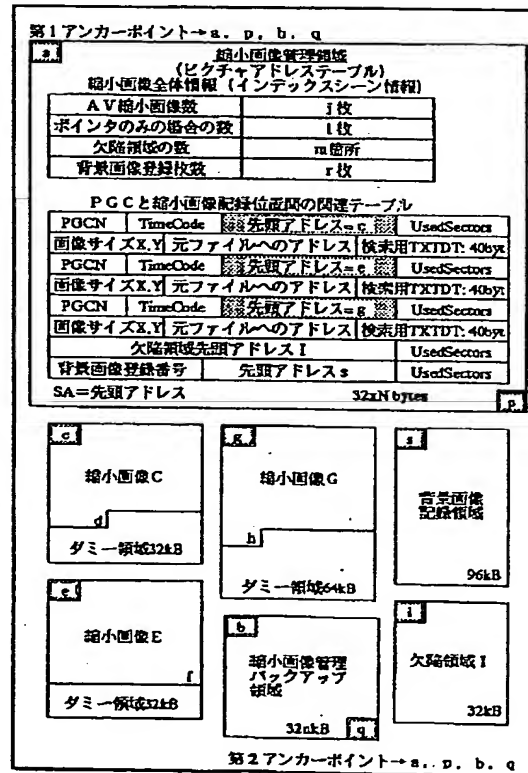 第1アンカーポイント→a, p, b, q
a
縮小画像管理領域
(ピクチャアドレステーブル)
縮小画像全体情報 (インデックスシーン情報)
AV縮小画像数 j枚
ポインタのみの場合の数 l枚
欠陥領域の数 m箇所
背景画像登録枚数 r枚
PGCと縮小画像記録位置間の関連テーブル
PGCN TimeCode 先頭アドレス=c UsedSectors
画像サイズX,Y 元ファイルへのアドレス 検索用TXTDT: 40byt
PGCN TimeCode 先頭アドレス=e UsedSectors
画像サイズX,Y 元ファイルへのアドレス 検索用TXTDT: 40byt
PGCN TimeCode 先頭アドレス=g UsedSectors
画像サイズX,Y 元ファイルへのアドレス 検索用TXTDT: 40byt
欠陥領域先頭アドレスI UsedSectors
背景画像登録番号 先頭アドレスs UsedSectors
SA=先頭アドレス 32xN bytes p
c
縮小画像C
d
ダミー領域32kB
g
縮小画像G
h
ダミー領域64kB
s
背景画像
記録領域
96kB
e
縮小画像E
f
ダミー領域32kB
b
縮小画像管理
バックアップ
領域
32nkB q
i
欠陥領域I
32kB
第2アンカーポイント→a, p, b, q